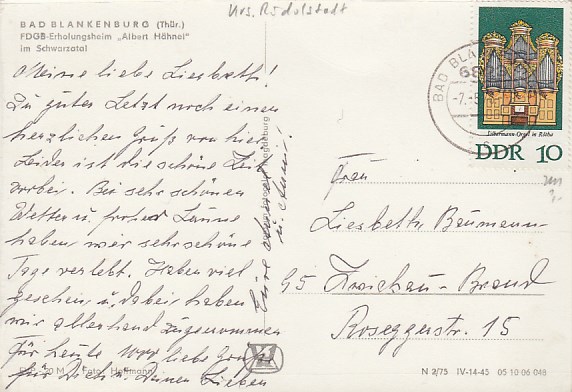 Krs. Rudolstadt
BAD BLANKENBURG (Thür.)
FDGB-Erholungsheim „Albert Hähnel"
im Schwarzatal
Meine liebe Liesbeth!
Zu guter Letzt noch einen
herzlichen Gruß von hier
Leider ist die schöne Zeit
vorbei. Bei sehr schönen
Wetter u. froher Laune
haben wir sehr schöne
Tage verlebt. Haben viel
gesehen u. dabei haben
wir allerhand zugenommen
Für heute liebe Grüße
für Dich u. Deinen Lieben
Eure
BAD BLAN
Silbermann-Orgel in Rötha
DDR 10
Frau
Liesbeth Baumann
95 Zwickau-Brand
Roseggerstr. 15
Foto: Hoffmann
N 2/75 IV-14-45 05 10 06 048